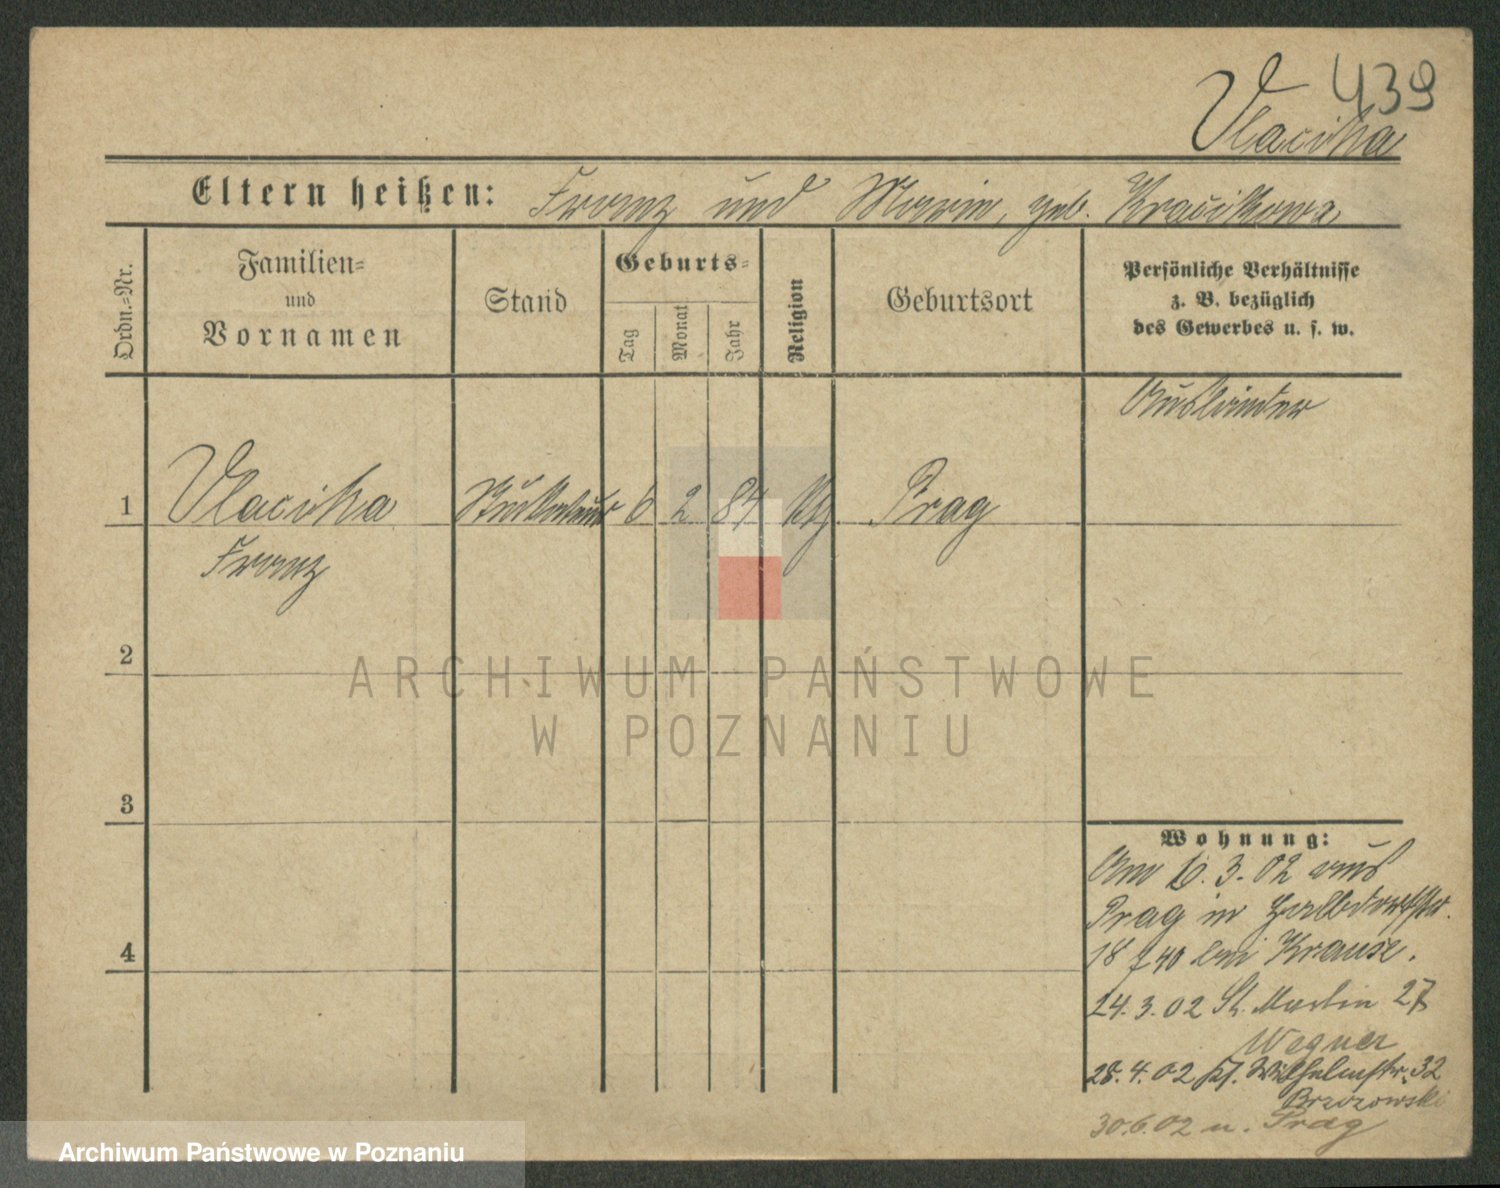 439
Vlacika
Eltern heißen: Franz und Marie, geb. Kračikowa
Ordn.-Nr.
Familien-
und
Vornamen
Stand
Geburts-
Tag
Monat
Jahr
Religion
Geburtsort
Persönliche Verhältnisse
z. B. bezüglich
des Gewerbes u. s. w.
Ausländer
1 Vlacika 6 2 84 Prag
Franz
2
3
4
Wohnung:
Am 6.3.02 aus
Prag in Halbdorfstr.
18 bei Krause.
24.3.02 St. Martin 27
Wegner
28.4.02 Kl. Wilhelmstr. 32
Brzozowski
30.6.02 n. Prag
ARCHIWUM PAŃSTWOWE
W POZNANIU
Archiwum Państwowe w Poznaniu